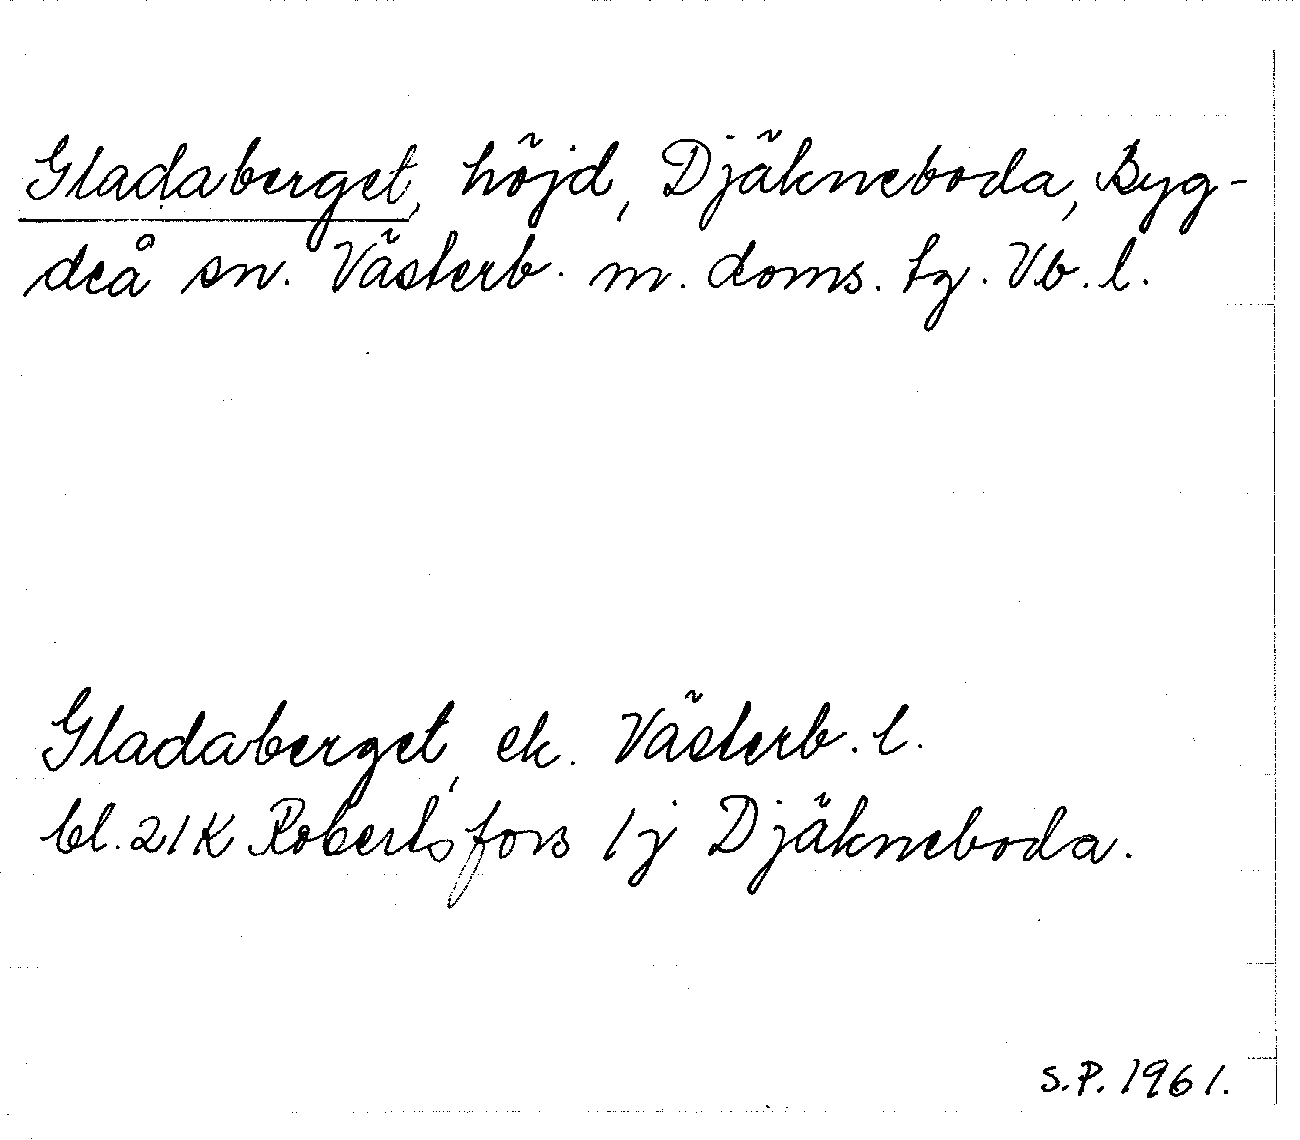 Gladaberget, höjd, Djäkneboda, Byg-
deå sn. Västerb. m. doms. tg. Vb. l.
Gladaberget, ek. Västerb. l.
bl. 21K Robertsfors 1j Djäkneboda.
S.P. 1961.